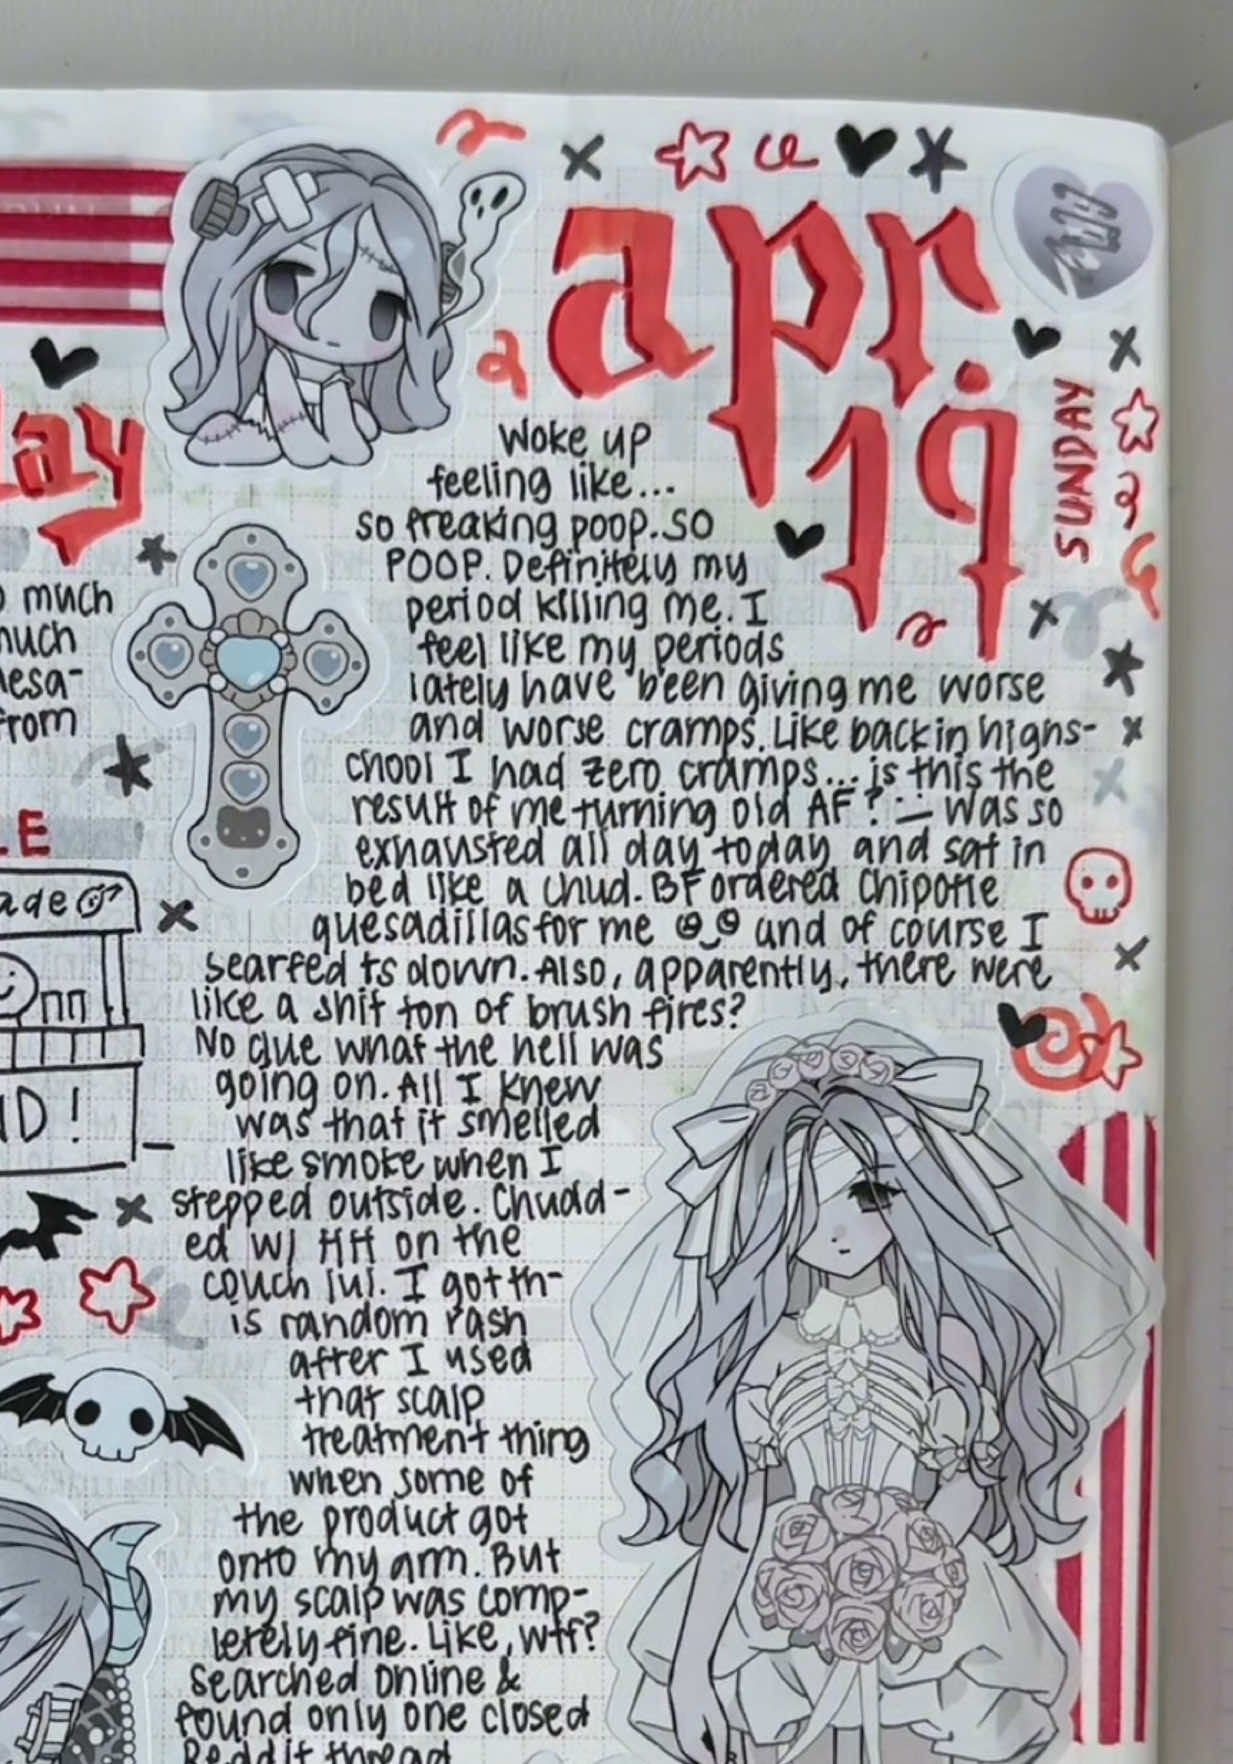 apr.
19
SUNDAY
Woke up
feeling like...
so freaking poop. SO
POOP. Definitely my
period killing me. I
feel like my periods
lately have been giving me worse
and worse cramps. Like back in highs-
chool I had zero cramps... is this the
result of me turning old AF? Was so
exhausted all day today and sat in
bed like a chud. BF ordered Chipotle
quesadillas for me and of course I
scarfed ts down. Also, apparently, there were
like a shit ton of brush fires?
No clue what the hell was
going on. All I knew
was that it smelled
like smoke when I
stepped outside. Chudd-
ed w/ HH on the
couch lul. I got th-
is random rash
after I used
that scalp
treatment thing
when some of
the product got
onto my arm. But
my scalp was comp-
letely fine. Like, wtf?
Searched online &
found only one closed
Reddit thread
ay
much
much
from
ade
ND!